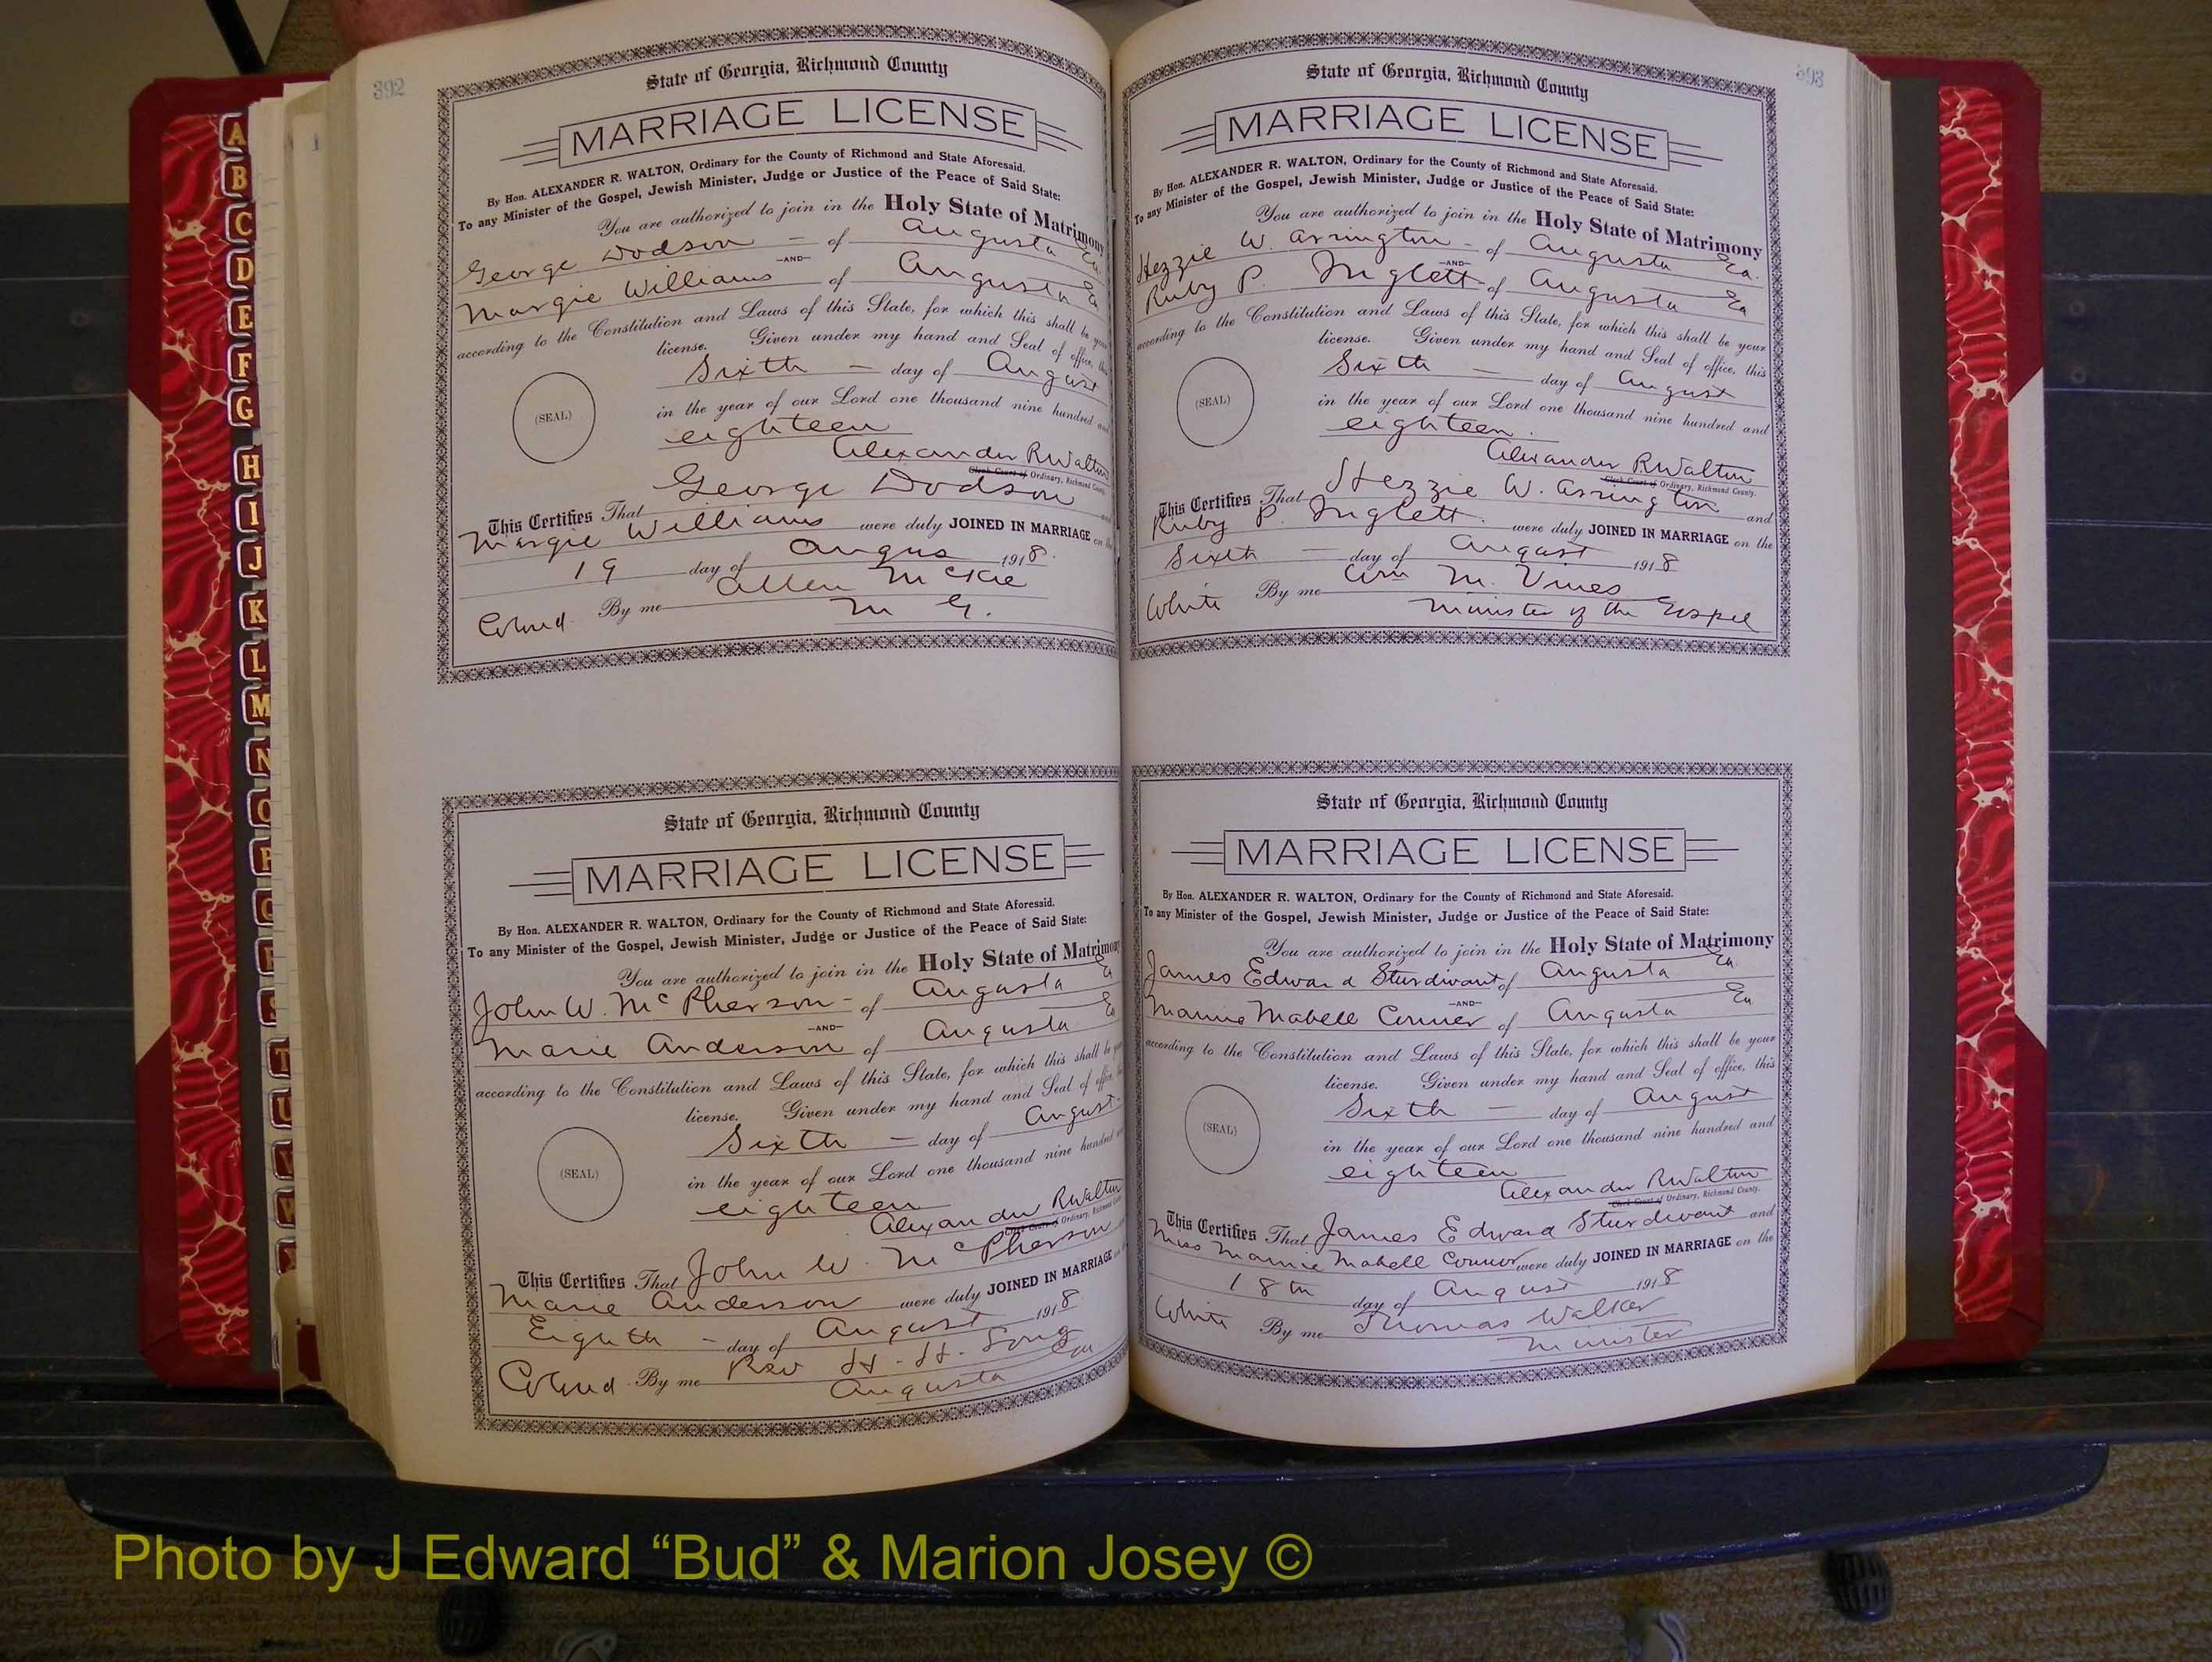 392
State of Georgia, Richmond County
MARRIAGE LICENSE
By Hon. ALEXANDER R. WALTON, Ordinary for the County of Richmond and State Aforesaid.
To any Minister of the Gospel, Jewish Minister, Judge or Justice of the Peace of Said State:
You are authorized to join in the Holy State of Matrimony
George Dodson - of Augusta Ga.
-AND-
Margie Williams of Augusta Ga
according to the Constitution and Laws of this State, for which this shall be your
license. Given under my hand and Seal of office, this
Sixth - day of August
(SEAL)
in the year of our Lord one thousand nine hundred and
eighteen
Alexander R Walton
Clerk Court of Ordinary, Richmond County.
This Certifies That George Dodson and
Margie Williams were duly JOINED IN MARRIAGE on the
19 day of Augus 1918.
Colored By me Allen McKie
M G.
State of Georgia, Richmond County
MARRIAGE LICENSE
By Hon. ALEXANDER R. WALTON, Ordinary for the County of Richmond and State Aforesaid.
To any Minister of the Gospel, Jewish Minister, Judge or Justice of the Peace of Said State:
You are authorized to join in the Holy State of Matrimony
John W. McPherson - of Augusta Ga
-AND-
Marie Anderson of Augusta Ga
according to the Constitution and Laws of this State, for which this shall be your
license. Given under my hand and Seal of office, this
Sixth - day of August
(SEAL)
in the year of our Lord one thousand nine hundred and
eighteen
Alexander R Walton
Clerk Court of Ordinary, Richmond County
This Certifies That John W. McPherson
Marie Anderson were duly JOINED IN MARRIAGE on
Eighth - day of August 1918
Colored By me Rev H. H. Long
Augusta Ga
393
State of Georgia, Richmond County
MARRIAGE LICENSE
By Hon. ALEXANDER R. WALTON, Ordinary for the County of Richmond and State Aforesaid.
To any Minister of the Gospel, Jewish Minister, Judge or Justice of the Peace of Said State:
You are authorized to join in the Holy State of Matrimony
Hezzie W. Arrington - of Augusta Ga.
-AND-
Ruby P. Inglett of Augusta Ga
according to the Constitution and Laws of this State, for which this shall be your
license. Given under my hand and Seal of office, this
Sixth - day of August
(SEAL)
in the year of our Lord one thousand nine hundred and
eighteen.
Alexander R Walton
Clerk Court of Ordinary, Richmond County.
This Certifies That Hezzie W. Arrington and
Ruby P. Inglett. were duly JOINED IN MARRIAGE on the
Sixth - day of August 1918
White By me Wm M. Vines
Minister of the Gospel
State of Georgia, Richmond County
MARRIAGE LICENSE
By Hon. ALEXANDER R. WALTON, Ordinary for the County of Richmond and State Aforesaid.
To any Minister of the Gospel, Jewish Minister, Judge or Justice of the Peace of Said State:
You are authorized to join in the Holy State of Matrimony
James Edward Sturdivant of Augusta Ga
-AND-
Mamie Mabell Conner of Augusta Ga
according to the Constitution and Laws of this State, for which this shall be your
license. Given under my hand and Seal of office, this
Sixth - day of August
(SEAL)
in the year of our Lord one thousand nine hundred and
eighteen
Alexander R Walton
Clerk Court of Ordinary, Richmond County.
This Certifies That James Edward Sturdivant and
Miss Mamie Mabell Connor were duly JOINED IN MARRIAGE on the
18th day of August 1918
White By me Thomas Walker
Minister
A
B
C
D
E
F
G
H
I
J
K
L
M
N
O
P
Q
R
S
T
U
V
W
Photo by J Edward “Bud” & Marion Josey ©